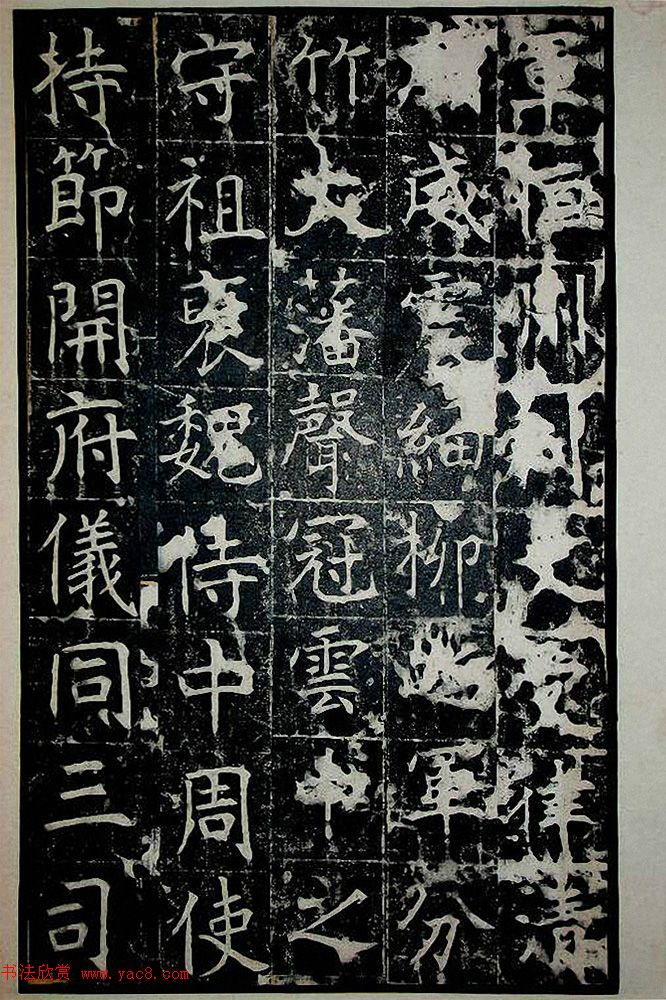 軍恒州刺史受律清
威細柳軍分
竹大藩聲冠雲中之
守祖裒魏侍中周使
持節開府儀同三司
书法欣赏 www.yac8.com